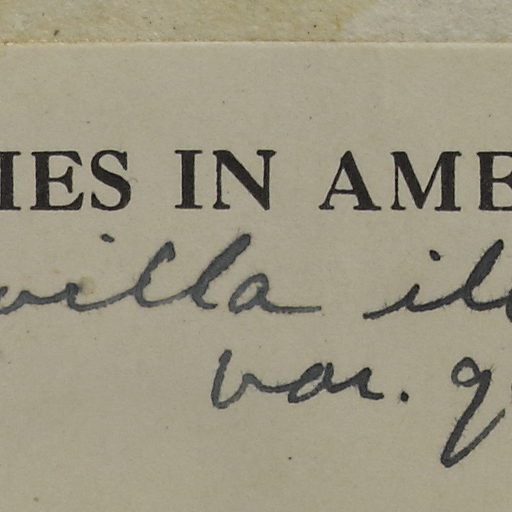 IES IN AME
villa il
var. g